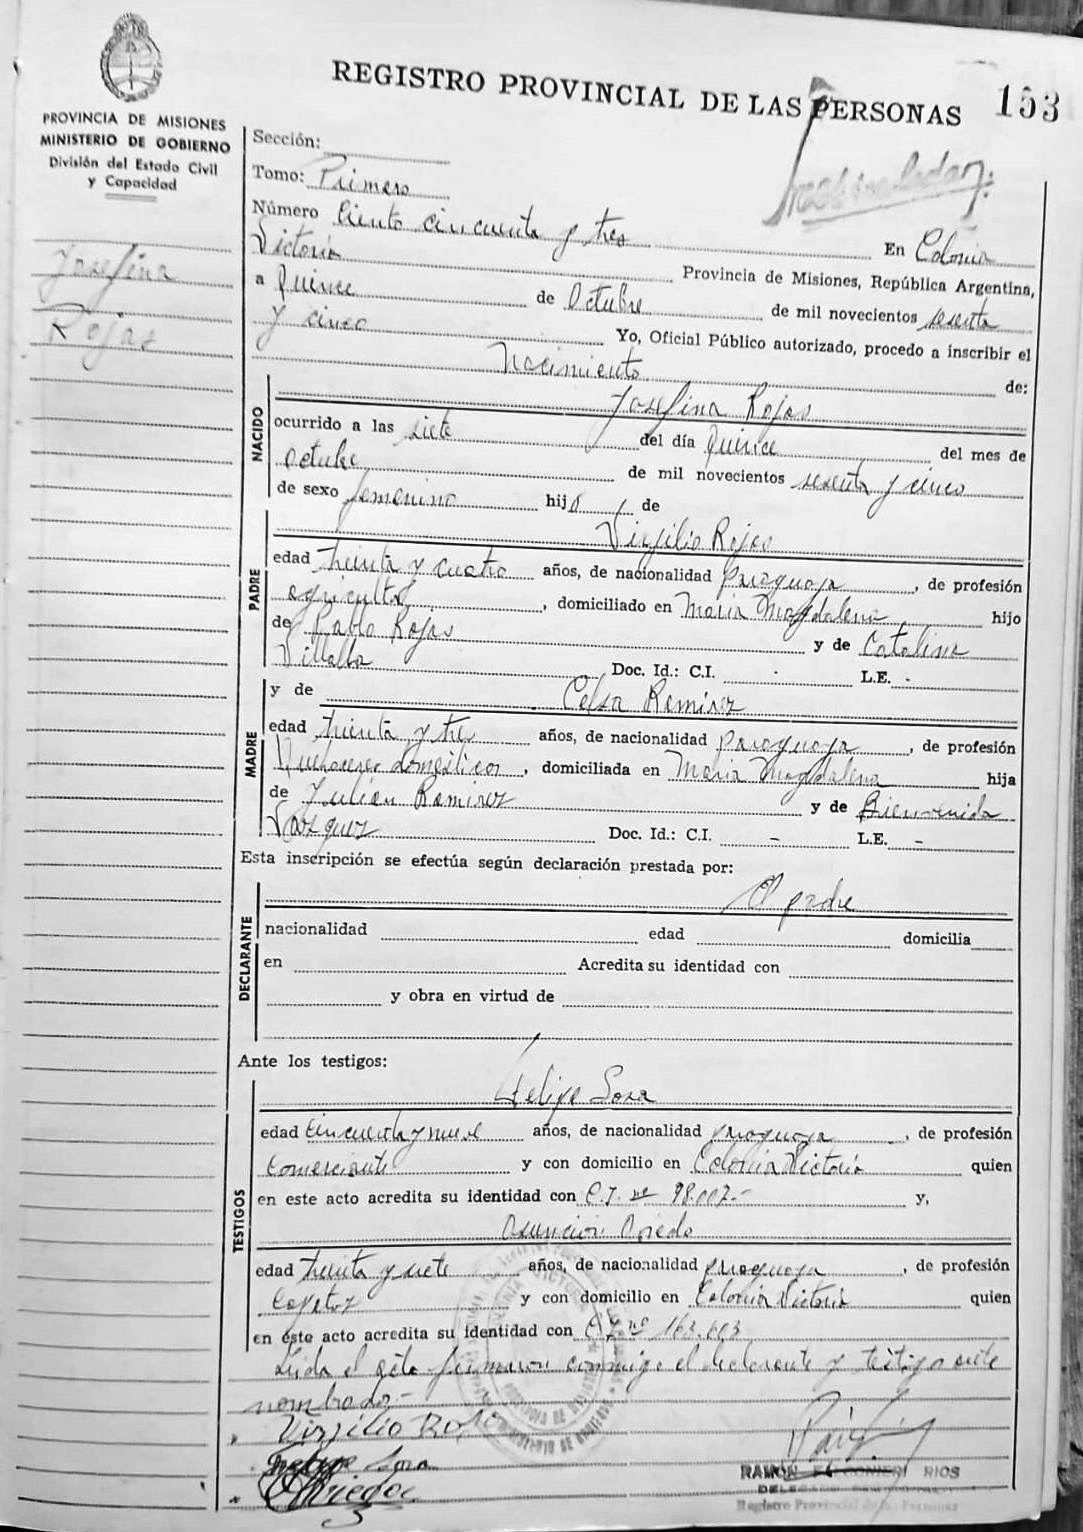 REGISTRO PROVINCIAL DE LAS PERSONAS 153
PROVINCIA DE MISIONES
MINISTERIO DE GOBIERNO
División del Estado Civil
y Capacidad
Josefina
Rojas
Sección:
Tomo: Primero
Número Ciento cincuenta y tres En Colonia
Victoria Provincia de Misiones, República Argentina,
a Quince de Octubre de mil novecientos sesenta
y cinco Yo, Oficial Público autorizado, procedo a inscribir el
Nacimiento de:
Josefina Rojas
NACIDO
ocurrido a las siete del día Quince del mes de
Octubre de mil novecientos sesenta y cinco
de sexo femenino hija de
Virjilio Rojas
PADRE
edad treinta y cuatro años, de nacionalidad paraguaya, de profesión
agricultor, domiciliado en Maria Magdalena hijo
de Pablo Rojas y de Catalina
Villalba Doc. Id.: C.I. - L.E. -
y de Celsa Ramirez
MADRE
edad treinta y tres años, de nacionalidad paraguaya, de profesión
Quehaceres domésticos, domiciliada en Maria Magdalena hija
de Julian Ramirez y de Bienvenida
Vazquez Doc. Id.: C.I. - L.E. -
Esta inscripción se efectúa según declaración prestada por:
El padre
DECLARANTE
nacionalidad edad domicilia
en Acredita su identidad con
y obra en virtud de
Ante los testigos:
Felipe Sosa
TESTIGOS
edad cincuenta y nueve años, de nacionalidad paraguaya, de profesión
Comerciante y con domicilio en Colonia Victoria quien
en este acto acredita su identidad con C.I. nº 98.007.- y,
Asuncion Oviedo
edad treinta y siete años, de nacionalidad paraguaya, de profesión
Capataz y con domicilio en Colonia Victoria quien
en este acto acredita su identidad con C.I. nº 163.603
Leida el acta firmaron conmigo el declarante y testigo
nombrado.-
Virjilio Rojas
Felipe Sosa
Oviedo
RAMON RIOS
Registro Provincial de las Personas